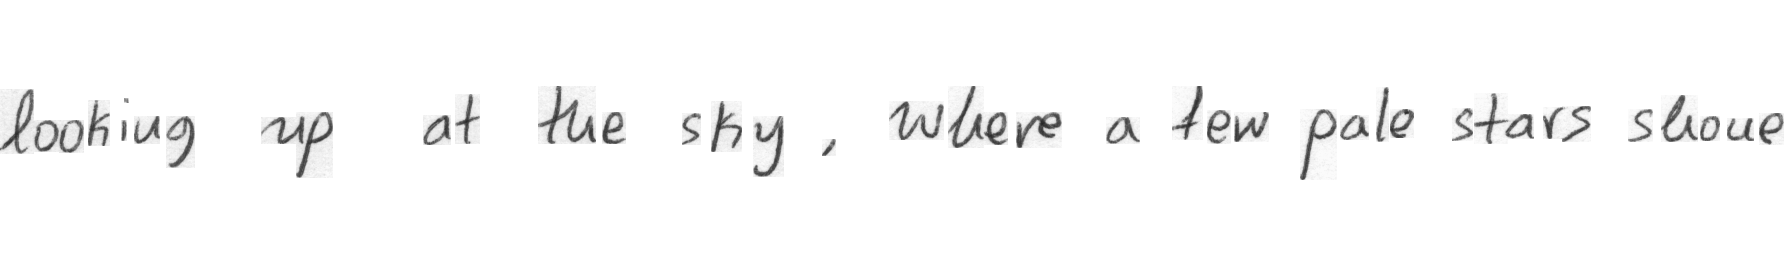 looking up at the sky, where a few pale stars shone